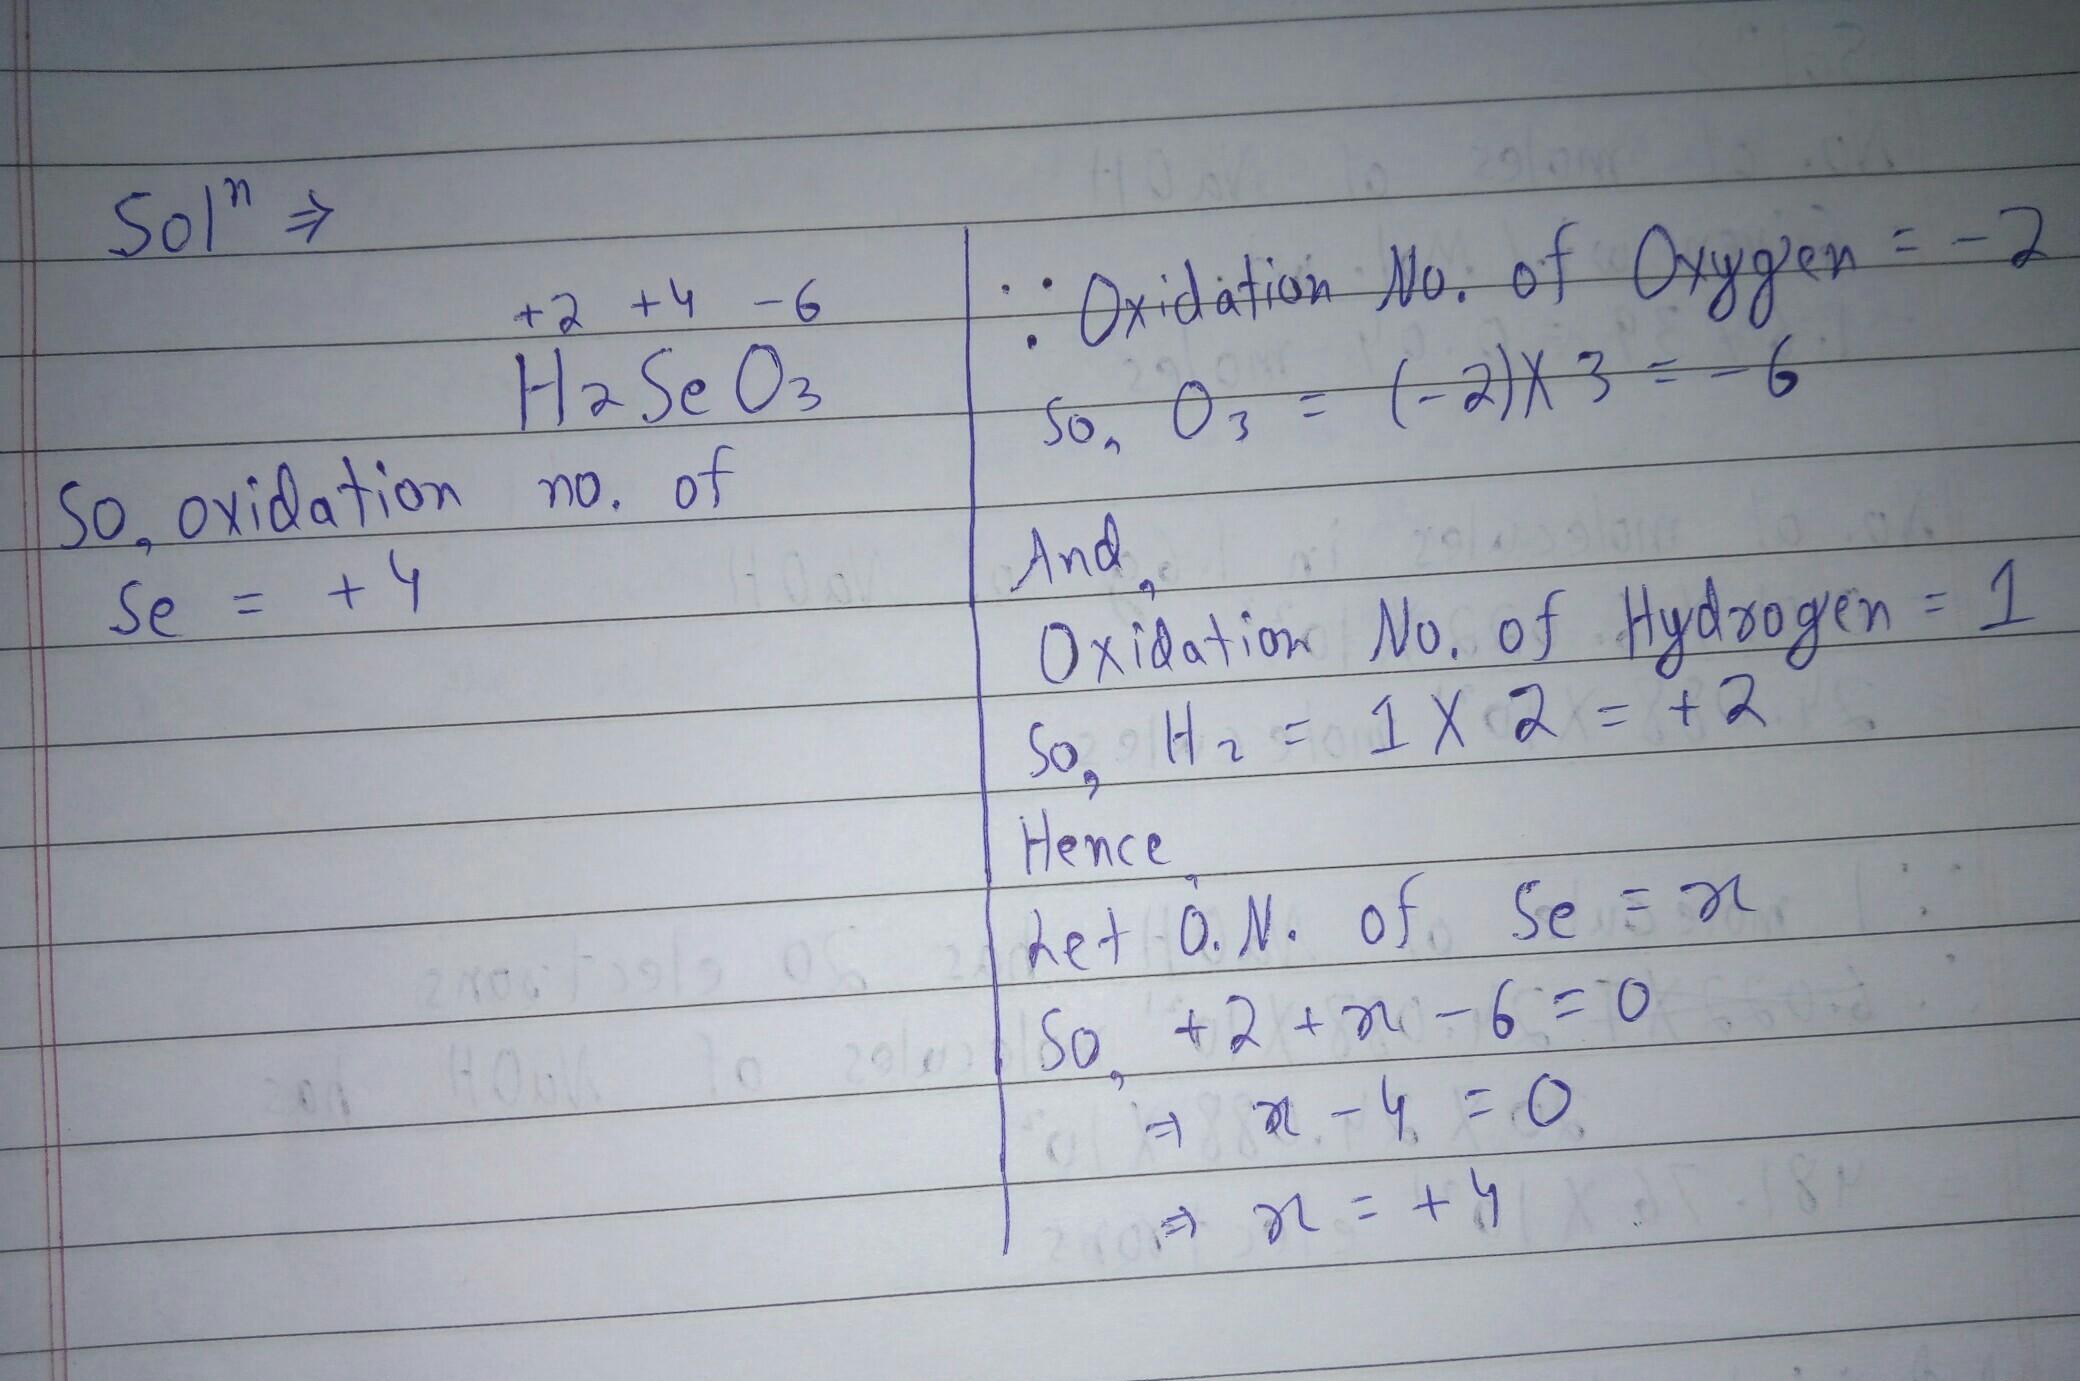 Solⁿ ⇒
+2 +4 -6
H₂SeO₃
So, oxidation no. of
Se = +4
∵ Oxidation No. of Oxygen = -2
So, O₃ = (-2)X3 = -6
And,
Oxidation No. of Hydrogen = 1
So, H₂ = 1 X 2 = +2
Hence,
Let O.N. of Se = x
So, +2 + x - 6 = 0
⇒ x - 4 = 0
⇒ x = +4